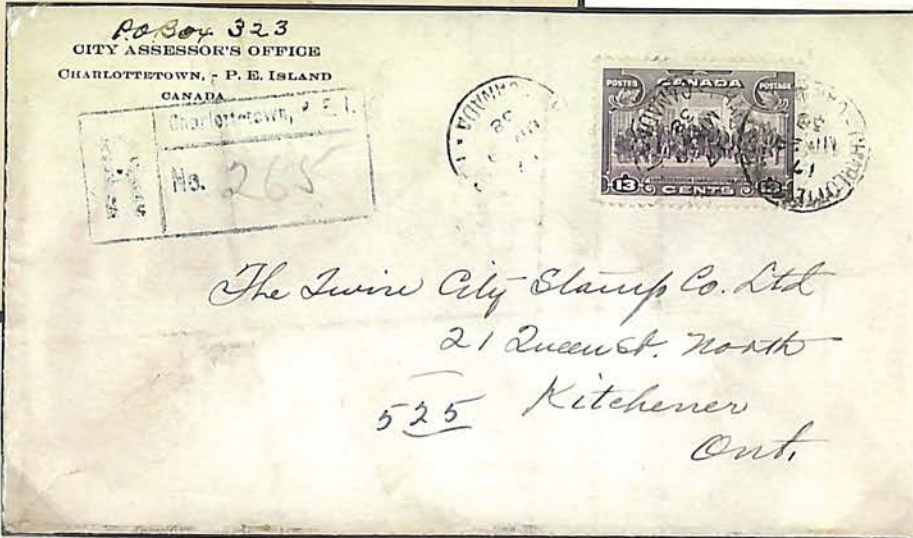 P.O Box 323
CITY ASSESSOR'S OFFICE
CHARLOTTETOWN, - P. E. ISLAND
CANADA
Charlottetown, P.E.I.
No. 265
POSTES CANADA POSTAGE
13 CENTS 13
CANADA
38
The Twin City Stamp Co. Ltd
21 Queen St. North
525 Kitchener
Ont.